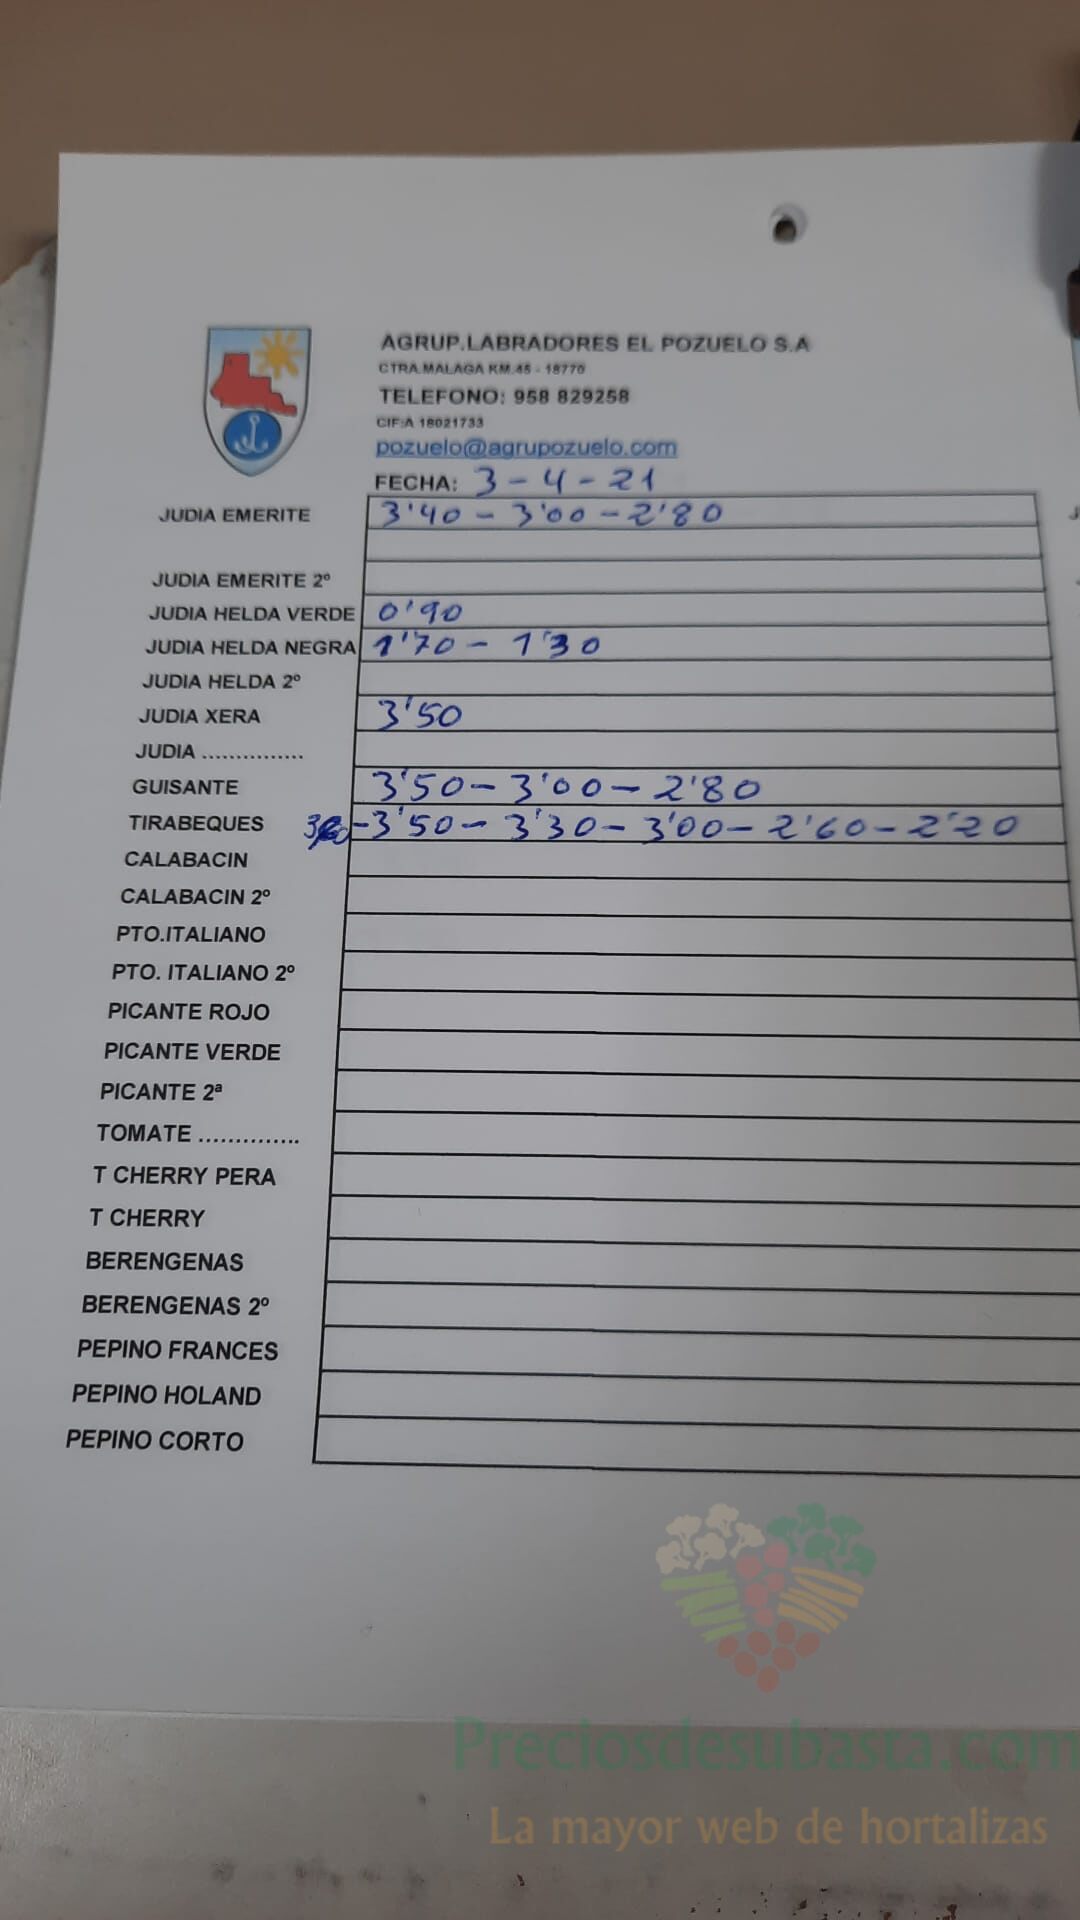 AGRUP.LABRADORES EL POZUELO S.A
CTRA.MALAGA KM.45 - 18770
TELEFONO: 958 829258
CIF:A 18021733
pozuelo@agrupozuelo.com
FECHA: 3-4-21
JUDIA EMERITE 3'40 - 3'00 - 2'80
JUDIA EMERITE 2º
JUDIA HELDA VERDE 0'90
JUDIA HELDA NEGRA 1'70 - 1'30
JUDIA HELDA 2º
JUDIA XERA 3'50
JUDIA ...............
GUISANTE 3'50 - 3'00 - 2'80
TIRABEQUES - 3'50 - 3'30 - 3'00 - 2'60 - 2'20
CALABACIN
CALABACIN 2º
PTO.ITALIANO
PTO. ITALIANO 2º
PICANTE ROJO
PICANTE VERDE
PICANTE 2ª
TOMATE ..............
T CHERRY PERA
T CHERRY
BERENGENAS
BERENGENAS 2º
PEPINO FRANCES
PEPINO HOLAND
PEPINO CORTO
Preciosdesubasta.com
La mayor web de hortalizas